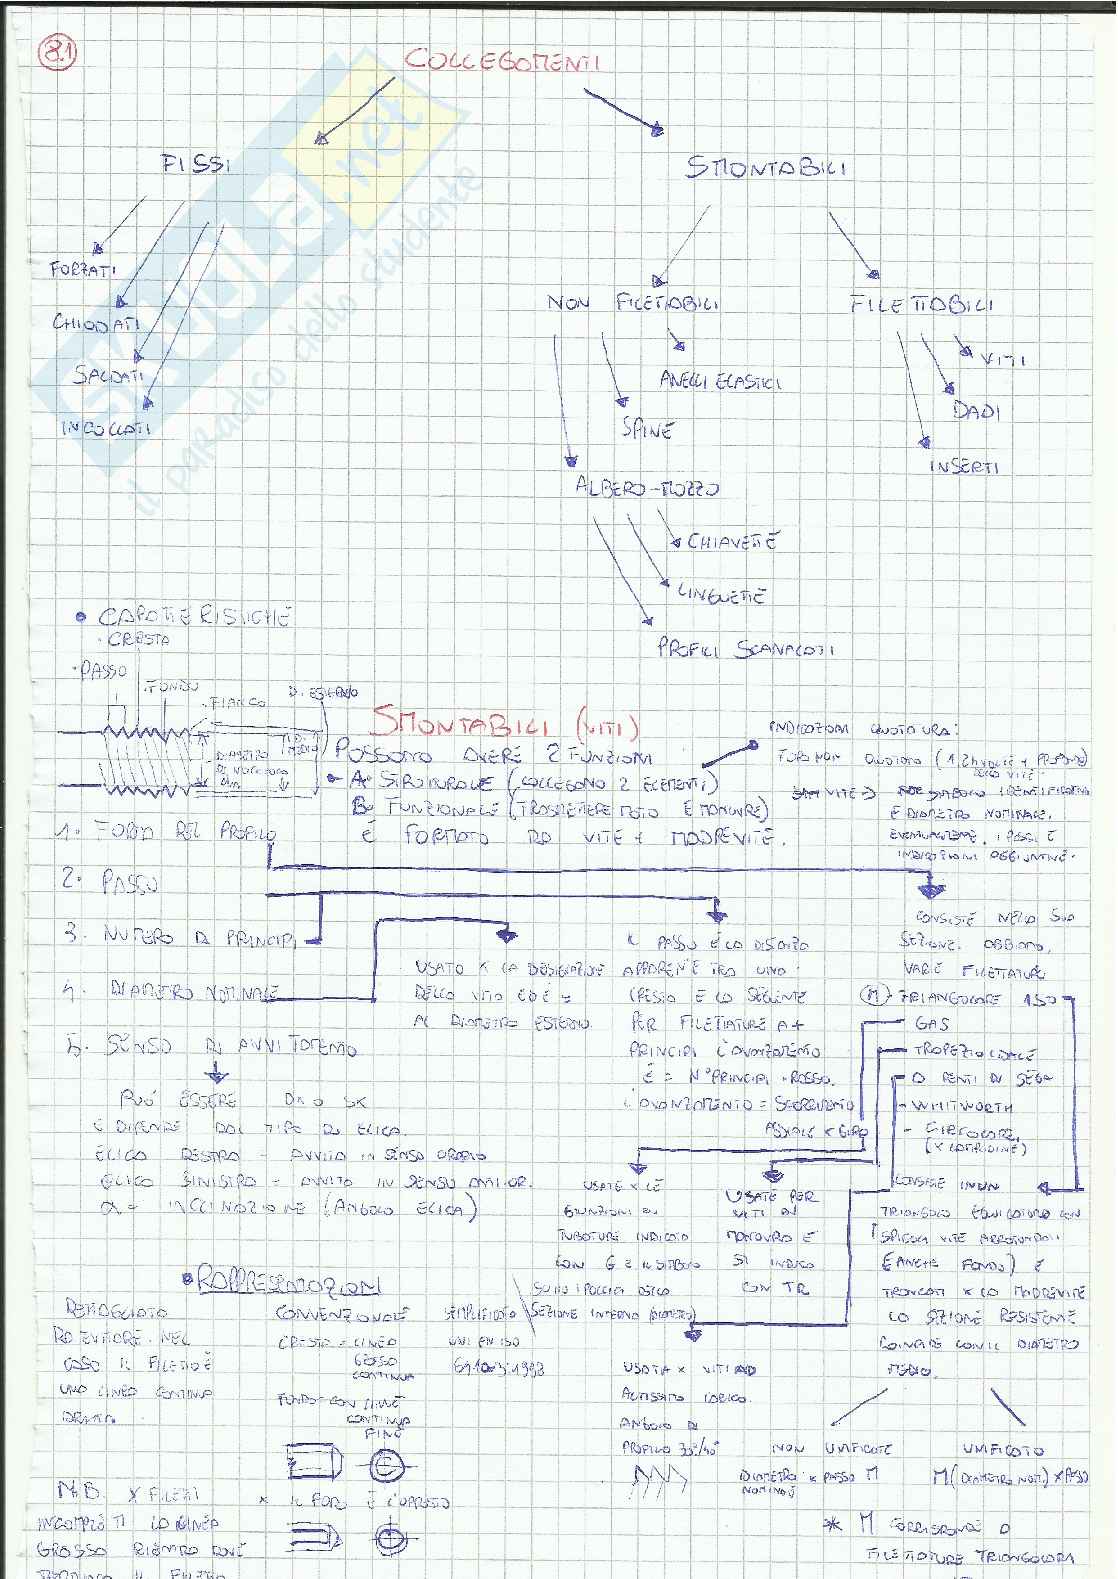 8.1
COLLEGAMENTI
FISSI
SMONTABILI
FORZATI
CHIODATI
SALDATI
INCOLLATI
NON FILETTABILI
FILETTABILI
ANELLI ELASTICI
SPINE
ALBERO-MOZZO
CHIAVETTE
LINGUETTE
PROFILI SCANALATI
VITI
DADI
INSERTI
skuola.net
il paradiso dello studente
• CARATTERISTICHE
· CRESTA
· PASSO
· FONDO
· FIANCO
D. ESTERNO
DIAMETRO DI NOCCIOLO
D. MEDIO
SMONTABILI (VITI)
POSSONO AVERE 2 FUNZIONI
A• STRUTTURALE (COLLEGANO 2 ELEMENTI)
B• FUNZIONALE (TRASMETTERE MOTO E MANOVRE)
È FORMATO DA VITE + MADREVITE.
INDICAZIONI QUOTATURA:
VITE ⇒
E DIAMETRO NOMINALE.
INDICAZIONI AGGIUNTIVE.
1. FORMA DEL PROFILO
2. PASSO
3. NUMERO DI PRINCIPI
4. DIAMETRO NOMINALE
5. SENSO DI AVVITAMENTO
PUÒ ESSERE DX O SX
E DIPENDE DAL TIPO DI ELICA.
ELICA DESTRA - AVVITO IN SENSO ORARIO
ELICA SINISTRA - AVVITO IN SENSO ANTIOR.
α = INCLINAZIONE (ANGOLO ELICA)
USATO X LA DESIGNAZIONE
DELLA VITE ED È =
AL DIAMETRO ESTERNO.
IL PASSO È LA DISTANZA
APPARENTE TRA UNA
CRESTA E LA SEGUENTE
PER FILETTATURE A +
PRINCIPI L'AVANZAMENTO
È = N° PRINCIPI · PASSO.
L'AVANZAMENTO = SCORRIMENTO
ASSIALE X GIRO
CONSISTE NELLA SUA
SEZIONE. ABBIAMO
VARIE FILETTATURE
(M) - TRIANGOLARE ISO
- GAS
- TRAPEZIOIDALE
- A DENTI DI SEGA
- WHITWORTH
- CIRCOLARE
CONSISTE IN UN
TRIANGOLO EQUILATERO CON
SPIGOLI VITE ARROTONDATI
(E ANCHE FONDO) E
TRONCATI X LA MADREVITE
LA SEZIONE RESISTENTE
COINCIDE CON IL DIAMETRO
MEDIO.
USATE X LE
GIUNZIONI DI
TUBATURE INDICATO
CON G E IL SIMBOLO
SUI POLLICI DELLA
SEZIONE INTERNA (DIAMETRO)
USATE PER
VITI DI
MANOVRA E
SI INDICA
CON TR
USATA X VITI AD
ALTISSIMO CARICO.
ANGOLO DI
PROFILO 30°/45°
NON UNIFICATE
DIAMETRO NOMINALE X PASSO M
UNIFICATO
M (DIAMETRO NOM.) X PASSO
* M CORRISPONDE A
FILETTATURE TRIANGOLARI
• RAPPRESENTAZIONI
DETTAGLIATO
CASO IL FILETTO È
UNA LINEA CONTINUA
CONVENZIONALE
CRESTA = LINEA
GROSSA
CONTINUA
FONDO - CON LINEE
CONTINUA
FINE
SEMPLIFICATO
UNI EN ISO
6410-3:1998
N.B. X FILETTI
INCOMPLETI LA LINEA
GROSSA RIENTRA DOVE
TERMINA IL FILETTO
X IL FORO È L'OPPOSTO